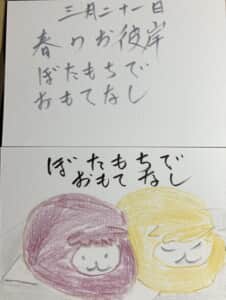 三月二十一日
春のお彼岸
ぼたもちで
おもてなし
ぼたもちで
おもてなし